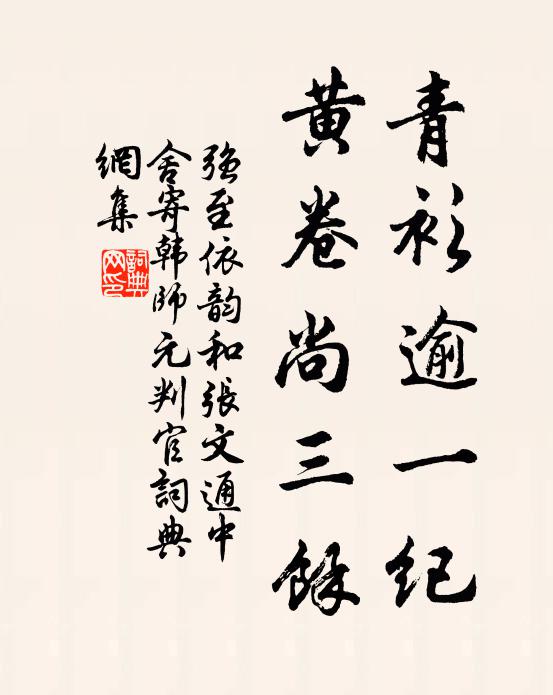 青衫逾一纪
黄卷尚三馀
强至依韵和張文通中
舍寄韩師元判官詞典
網集
詞典网印